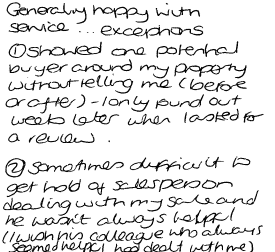 Generally happy with
service ... exceptions
① showed one potential
buyer around my property
without telling me (before
or after) - I only found out
weeks later when I asked for
a review.
② Sometimes difficult to
get hold of salesperson
dealing with my sale and
he wasn't always helpful
(I wish his colleague who always
seemed helpful had dealt with me)